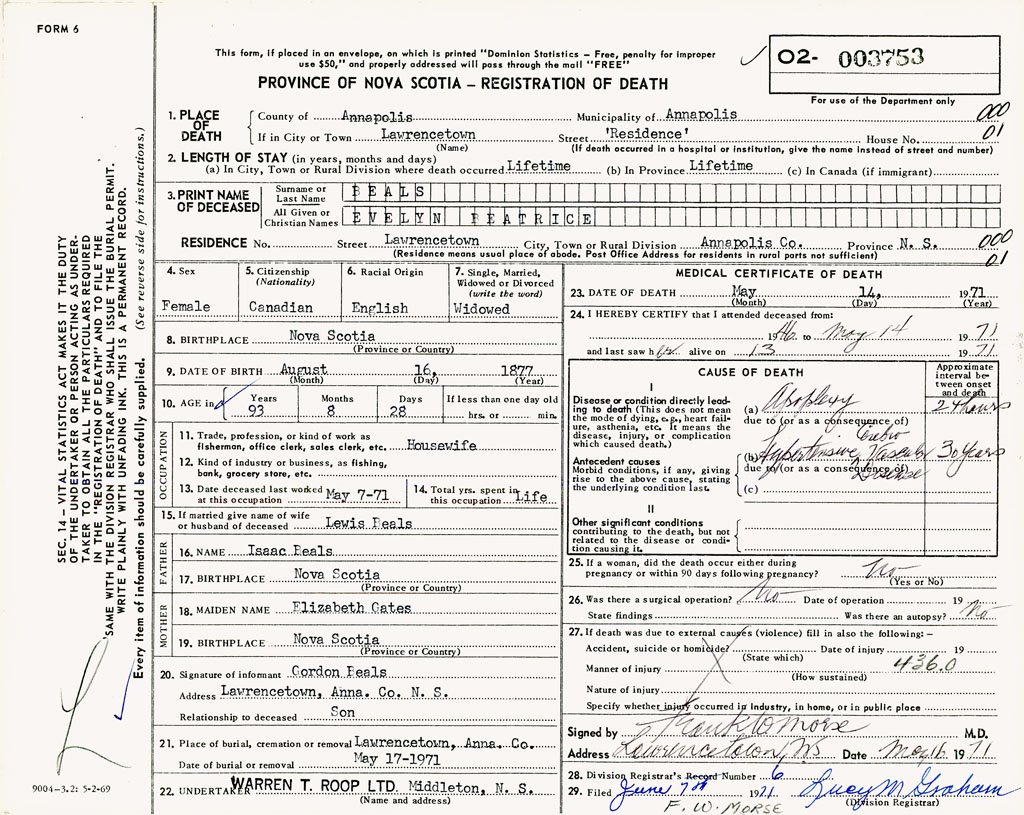 FORM 6
This form, if placed in an envelope, on which is printed "Dominion Statistics – Free, penalty for improper
use $50," and properly addressed will pass through the mail "FREE"
02- 003753
For use of the Department only
PROVINCE OF NOVA SCOTIA – REGISTRATION OF DEATH
1. PLACE OF DEATH County of Annapolis Municipality of Annapolis 000
If in City or Town Lawrencetown Street 'Residence' House No. 01
(Name) (If death occurred in a hospital or institution, give the name instead of street and number)
2. LENGTH OF STAY (in years, months and days)
(a) In City, Town or Rural Division where death occurred Lifetime (b) In Province Lifetime (c) In Canada (if immigrant)
3. PRINT NAME OF DECEASED Surname or Last Name BEALS
All Given or Christian Names EVELYN BEATRICE
RESIDENCE No. Street Lawrencetown City, Town or Rural Division Annapolis Co. Province N. S. 000
(Residence means usual place of abode. Post Office Address for residents in rural parts not sufficient) 01
4. Sex
Female
5. Citizenship
(Nationality)
Canadian
6. Racial Origin
English
7. Single, Married,
Widowed or Divorced
(write the word)
Widowed
8. BIRTHPLACE Nova Scotia
(Province or Country)
9. DATE OF BIRTH August 16, 1877
(Month) (Day) (Year)
10. AGE in Years Months Days If less than one day old
93 8 28 hrs. or min.
OCCUPATION
11. Trade, profession, or kind of work as
fisherman, office clerk, sales clerk, etc. Housewife
12. Kind of industry or business, as fishing,
bank, grocery store, etc.
13. Date deceased last worked
at this occupation May 7-71
14. Total yrs. spent in
this occupation Life
15. If married give name of wife
or husband of deceased Lewis Beals
FATHER
16. NAME Isaac Beals
17. BIRTHPLACE Nova Scotia
(Province or Country)
MOTHER
18. MAIDEN NAME Elizabeth Gates
19. BIRTHPLACE Nova Scotia
(Province or Country)
20. Signature of informant Gordon Beals
Address Lawrencetown, Anna. Co. N. S.
Relationship to deceased Son
21. Place of burial, cremation or removal Lawrencetown, Anna. Co.
Date of burial or removal May 17-1971
22. UNDERTAKER WARREN T. ROOP LTD. Middleton, N. S.
(Name and address)
MEDICAL CERTIFICATE OF DEATH
23. DATE OF DEATH May 14, 1971
(Month) (Day) (Year)
24. I HEREBY CERTIFY that I attended deceased from:
1946 to May 14 1971
and last saw her alive on 13 1971
CAUSE OF DEATH
Approximate
interval be-
tween onset
and death
I
Disease or condition directly lead-
ing to death (This does not mean
the mode of dying, e.g., heart fail-
ure, asthenia, etc. It means the
disease, injury, or complication
which caused death.)
(a) Apoplexy 24 hours
due to (or as a consequence of)
Antecedent causes
Morbid conditions, if any, giving
rise to the above cause, stating
the underlying condition last.
(b) Hypertensive Cerebro Vascular Disease 30 Years
due to (or as a consequence of)
(c)
II
Other significant conditions
contributing to the death, but not
related to the disease or condi-
tion causing it.
25. If a woman, did the death occur either during
pregnancy or within 90 days following pregnancy? No
(Yes or No)
26. Was there a surgical operation? No Date of operation 19
State findings Was there an autopsy? No
27. If death was due to external causes (violence) fill in also the following: –
Accident, suicide or homicide? Date of injury 19
(State which)
Manner of injury 436.0
(How sustained)
Nature of injury
Specify whether injury occurred in Industry, in home, or in public place
Signed by Frank W Morse M.D.
Address Lawrencetown, NS Date May 16 1971
28. Division Registrar's Record Number 6
29. Filed June 7th 1971 Lucy M Graham
(Division Registrar)
F. W. MORSE
SEC. 14 – VITAL STATISTICS ACT MAKES IT THE DUTY
OF THE UNDERTAKER OR PERSON ACTING AS UNDER-
TAKER TO OBTAIN ALL THE PARTICULARS REQUIRED
IN THE "REGISTRATION OF DEATH" AND TO FILE THE
SAME WITH THE DIVISION REGISTRAR WHO SHALL ISSUE THE BURIAL PERMIT.
WRITE PLAINLY WITH UNFADING INK. THIS IS A PERMANENT RECORD.
Every item of information should be carefully supplied. (See reverse side for instructions.)
9004-3.2: 5-2-69